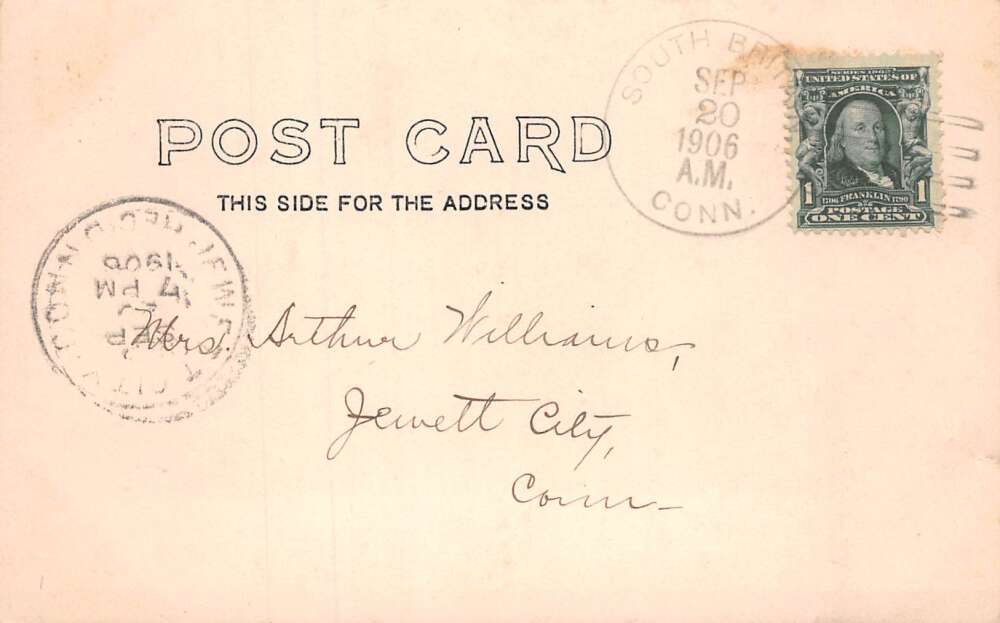 SOUTH BRIT
SEP
20
1906
A.M.
CONN.
SERIES 1902
UNITED STATES OF
AMERICA
1 1706 FRANKLIN 1790 1
POSTAGE
ONE CENT
POST CARD
THIS SIDE FOR THE ADDRESS
JEWETT CITY
CONN.
REC'D.
SEP
7 PM
1906
Mrs. Arthur Williams,
Jewett City,
Conn—